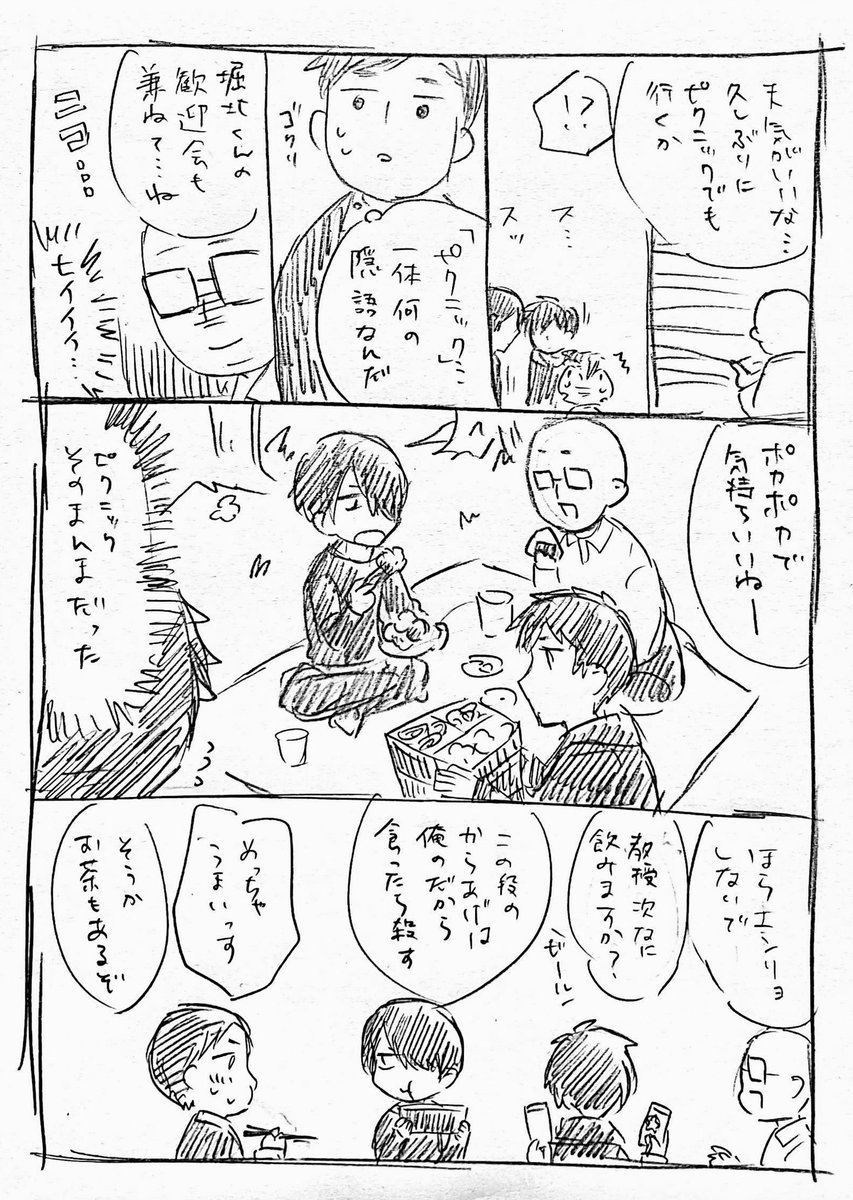 天気がいいな…
久しぶりに
ピクニックでも
行くか
!?
ス…
スッ
「ピクニック」…
一体何の
隠語なんだ
ゴクリ
堀北くんの
歓迎会も
兼ねて…ね
セイイイ…
ポカポカで
気持ちいいねー
ピクニック
そのまんまだった
ほらエンリョ
しないで
教授次なに
飲みますか?
ビール
この段の
からあげは
俺のだから
食ったら殺す
めっちゃ
うまいっす
そうか
お茶もあるぞ